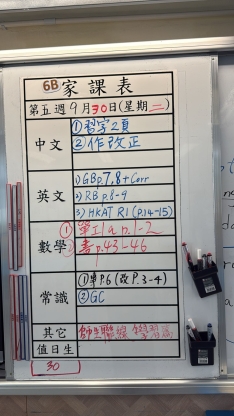 6B家課表
第五週 9月30日(星期二)
中文
①習字2頁
②作改正
英文
1) GBp.7,8+Corr
2) RB p.8-9
3) HKAT R1 (p.14-15)
數學
①單工1a p.1-2
②書p.43-46
常識
①單P.6 (改P.3-4)
②GC
其它
師生聯線 學習
值日生
30